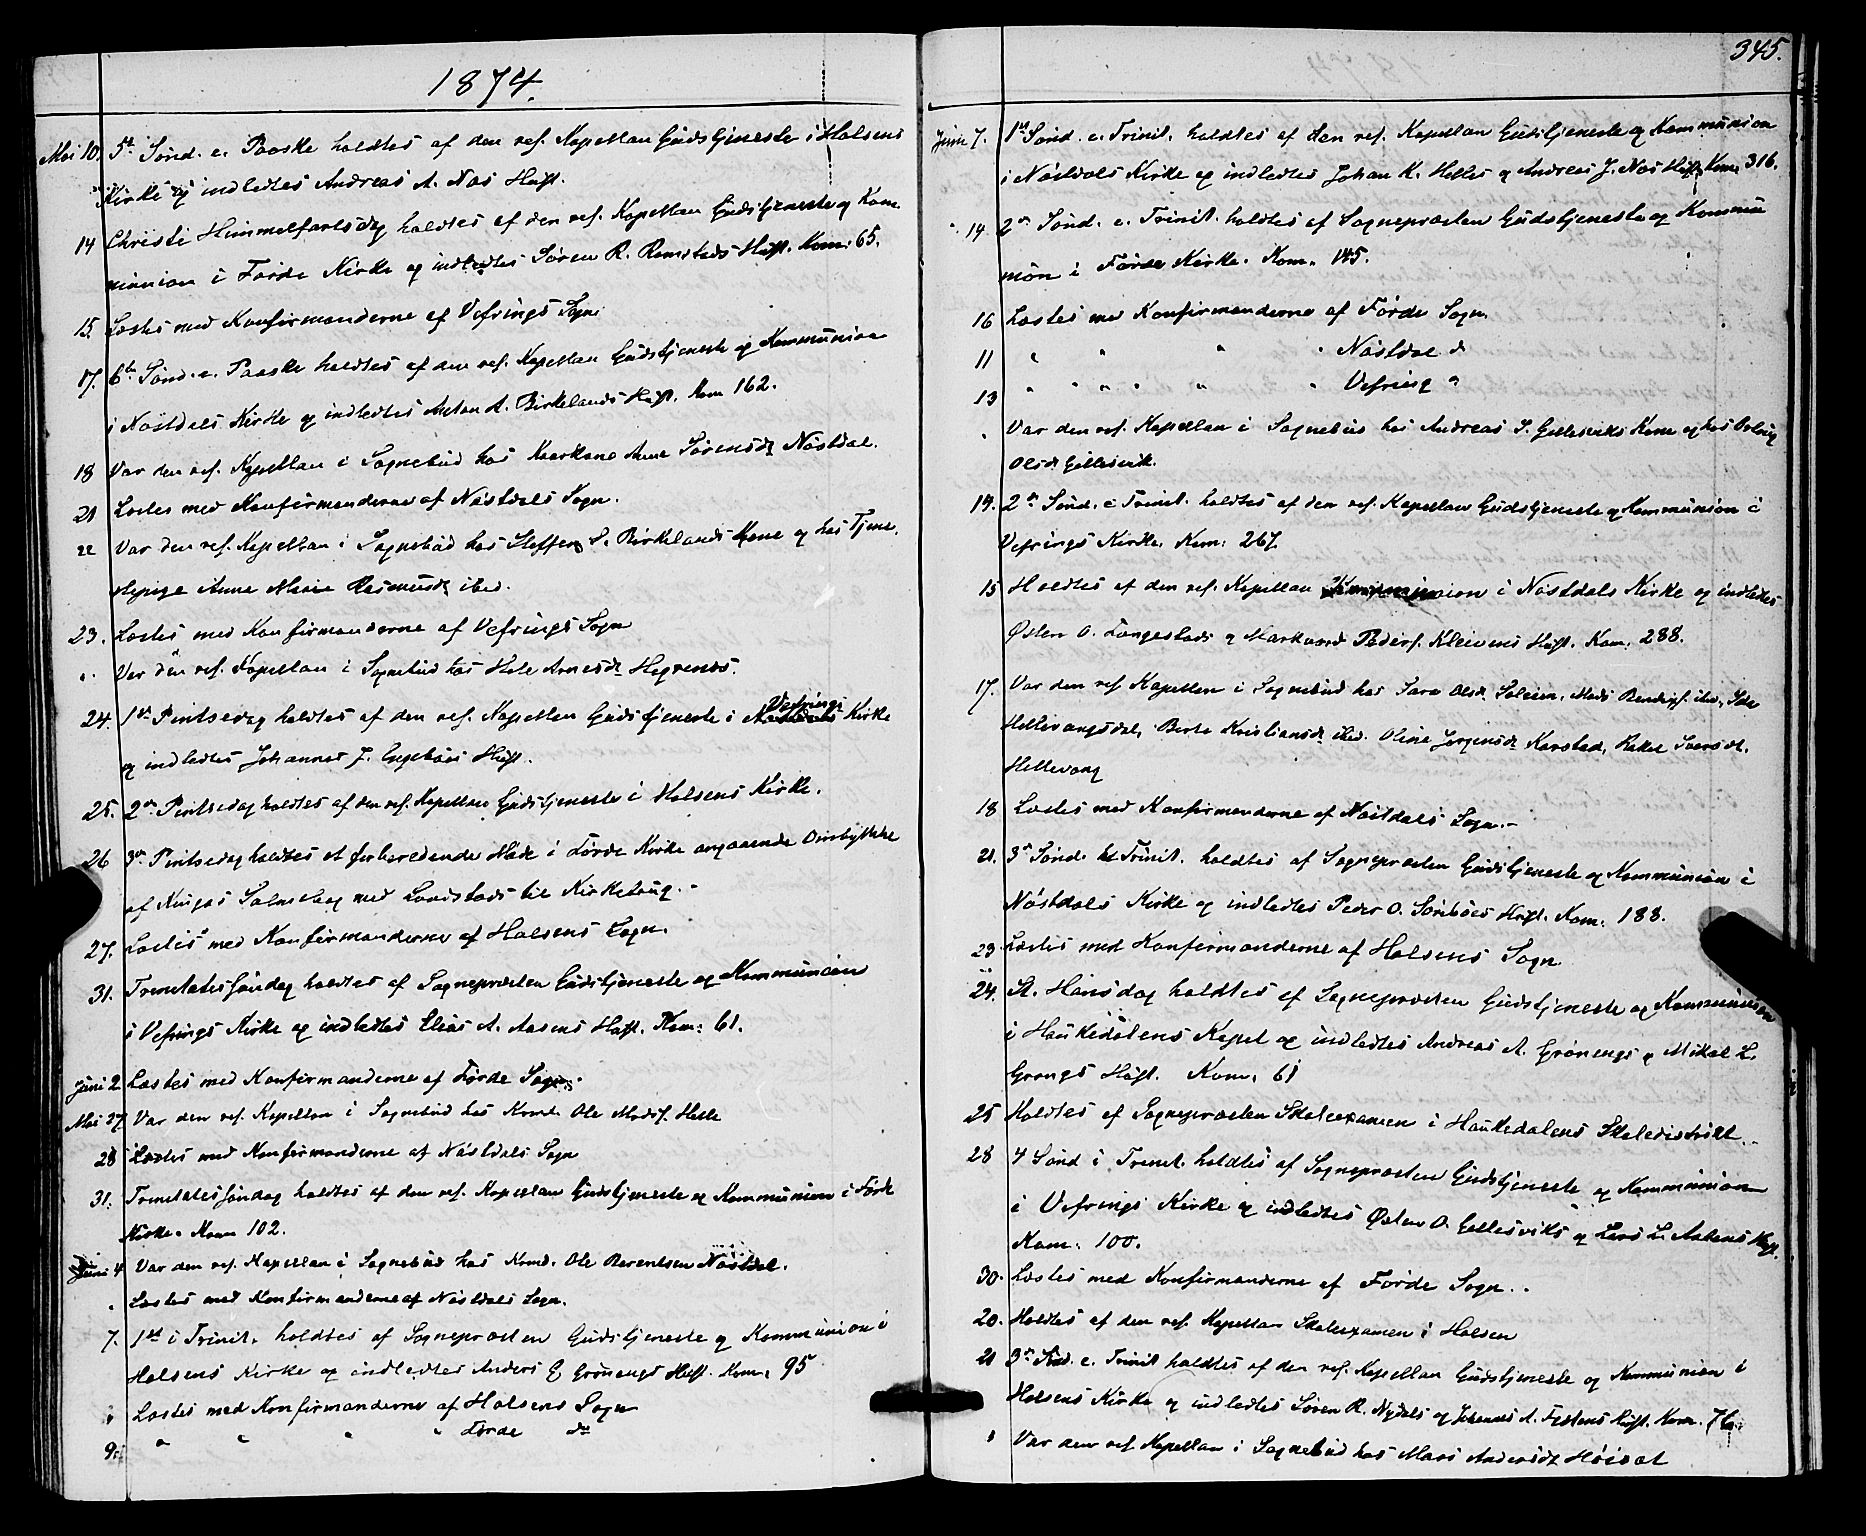 1874.
Mai 10. 5te Sønd. e. Paaske holdtes af den res. Kapellan Gudstjeneste i Holsens
Kirke og indledtes Andreas A. Nøs Hust.
14 Christi Himmelfartsdag holdtes af den res. Kapellan Gudstjeneste og Kom
munion i Førde Kirke og indledtes Søren R. Ramstads Hust. Kom: 65.
15. Læstes med Konfirmanderne af Vefrings Sogn
17. 6te Sønd. e. Paaske holdtes af den res. Kapellan Gudstjeneste og Kommunion
i Nøstdals Kirke og indledtes Anton A. Birkelands Hust. Kom 162.
18 Var den res. Kapellan i Sognebud hos Kaarkone Anne Sørensdr Nøstdal.
21 Læstes med Konfirmanderne af Nøstdals Sogn.
22 Var den res. Kapellan i Sognebud hos Steffen S. Birkelands Kone og hos Tjene
stepige Anne Marie Rasmusdr ibid.
23. Læstes med Konfirmanderne af Vefrings Sogn
" Var den res. Kapellan i Sognebud hos Arnesdr Hegrenes.
24. 1ste Pintsedag holdtes af den res. Kapellan Gudstjeneste i Vefrings Kirke
og indledtes Johannes J. Engebøes Hust.
25. 2den Pintsedag holdtes af den res. Kapellan Gudstjeneste i Holsens Kirke.
26 3die Pintsedag holdtes et forberedende Møde i Førde Kirke angaaende Ombyttelse
af Kingos Salmebog med Landstads til Kirkebrug.
27. Læstes med Konfirmanderne af Holsens Sogn.
31. Trinitatissøndag holdtes af Sognepræsten Gudstjeneste og Kommunion
i Vefrings Kirke og indledtes Elias A. Aasens Hust. Kom: 61.
Juni 2 Læstes med Konfirmanderne af Førde Sogn.
Mai 27. Var den res. Kapellan i Sognebud hos Ole Madss. Helle
28 Læstes med Konfirmanderne af Nøstdals Sogn
31. Trinitatissøndag holdtes af den res. Kapellan Gudstjeneste og Kommunion i Førde
Kirke. Kom 102.
Juni 4 Var den res. Kapellan i Sognebud hos Ole Berentsen Nøstdal.
" Læstes med Konfirmanderne af Nøstdals Sogn.
7. 1ste i Trinit. holdtes af Sognepræsten Gudstjeneste og Kommunion i
Holsens Kirke og indledtes Anders E Grønengs Hust. Kom. 95
" Læstes med Konfirmanderne af Holsens Sogn
9. " " " " Førde do
345.
Juni 7. 1ste Sønd. e. Trinit. holdtes af den res. Kapellan Gudstjeneste og Kommunion
i Nøstdals Kirke og indledtes Johan K. Helles og Andreas J. Nøs Hust. Kom. 316.
" 14. 2den Sønd. e. Trinit. holdtes af Sognepræsten Gudstjeneste og Kommu
nion i Førde Kirke. Kom. 145.
16 Læstes med Konfirmanderne af Førde Sogn.
11 " " " " Nøstdal do
13 " " " " " " Vefring "
" Var den res. Kapellan i Sognebud hos Andreas S. Gellesviks Kone og hos
Olsdr Gellesvik.
14. 2den Sønd. e Trinit. holdtes af den res. Kapellan Gudstjeneste og Kommunion i
Vefrings Kirke. Kom: 267.
15 Holdtes af den res. Kapellan Kommunion i Nøstdals Kirke og indledtes
Østen O. Langestads og Markvard Peders. Kleivens Hust. Kom. 288.
17. Var den res. Kapellan i Sognebud hos Sara Olsdr Soleim, Mads ibid.,
Hellevangsdal, Berte Kristiansdr ibid. Oline Jørgensdr Karstad, Rakel
Hellevang
18 Læstes med Konfirmanderne af Nøstdals Sogn.
21. 3die Sønd. e Trinit. holdtes af Sognepræsten Gudstjeneste og Kommunion i
Nøstdals Kirke og indledtes Peder O. Sørebøes Hust. Kom. 188.
23 Læstes med Konfirmanderne af Holsens Sogn
24. St. Hansdag holdtes af Sognepræsten Gudstjeneste og Kommunion
i Haukedalens Kapel og indledtes Andreas A. Grønengs og Mikal L.
Grongs Hust. Kom. 61
25 Holdtes af Sognepræsten Skoleexamen i Haukedalens Skoledistrikt.
28 4 Sønd i Trinit. holdtes af Sognepræsten Gudstjeneste og Kommunion
i Vefrings Kirke og indledtes Østen O. Gellesviks og Lars L. Aasens Hust.
Kom. 100.
30. Læstes med Konfirmanderne af Førde Sogn.
20. Holdtes af den res. Kapellan Skoleexamen i Holsen
21 3die Sønd. e. Trinit holdtes af den res. Kapellan Gudstjeneste og Kommunion i
Holsens Kirke og indledtes Søren R. Nydals og Johannes A. Hust. Kom. 76.
" Var den res. Kapellan i Sognebud hos Mari Andersdr